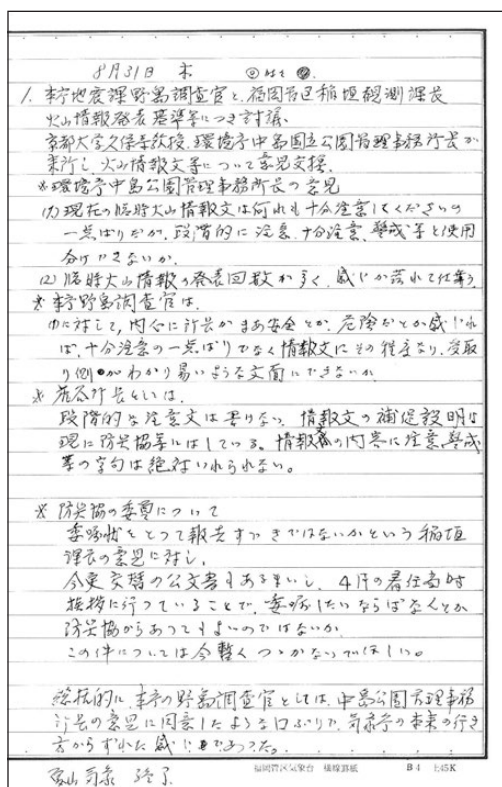 8月31日 木
1. 本庁地震課野島調査官と、福岡管区稲垣観測課長
火山情報発表基準等につき討議、
京都大学久保寺教授、環境庁中島国立公園管理事務所長が
来所し、火山情報文等について意見交換。
※環境庁中島公園管理事務所長の意見
(1)現在の臨時火山情報文は何れも十分注意してくださいの
一点ばりだが、段階的に注意、十分注意、警戒等と使用
分けできないか。
(2)臨時火山情報の発表回数が多く、感じが薄れて仕舞う。
※本庁野島調査官は、
(1)に対して、内心に所長がまあ安全とか、危険だとか感じれ
ば、十分注意の一点ばりでなく情報文にその程度なり、受取
り側がわかり易いような文面にできないか
※ 所長としては、
段階的な注意文は書けない。情報文の補促説明は
現に防災協等にはしている。情報の内容に注意、警戒
等の字句は絶対いれられない。
※ 防災協の委員について
委嘱状をとって報告すべきではないかという稲垣
課長の意見に対し、
今更交替の公文書もあるまいし、4月の着任当時
挨拶に行っていることで、委嘱したいならばなんとか
防災協からあってもよいのではないか
この件については今暫くつつかないでほしい。
総括的に、本庁の野島調査官としては、中島公園管理事務
所長の意見に同意したような口ぶりで、気象庁の本来の行き
方からずれた感じであった。
気象 終了
福岡管区気象台 横線罫紙 B4 E45K